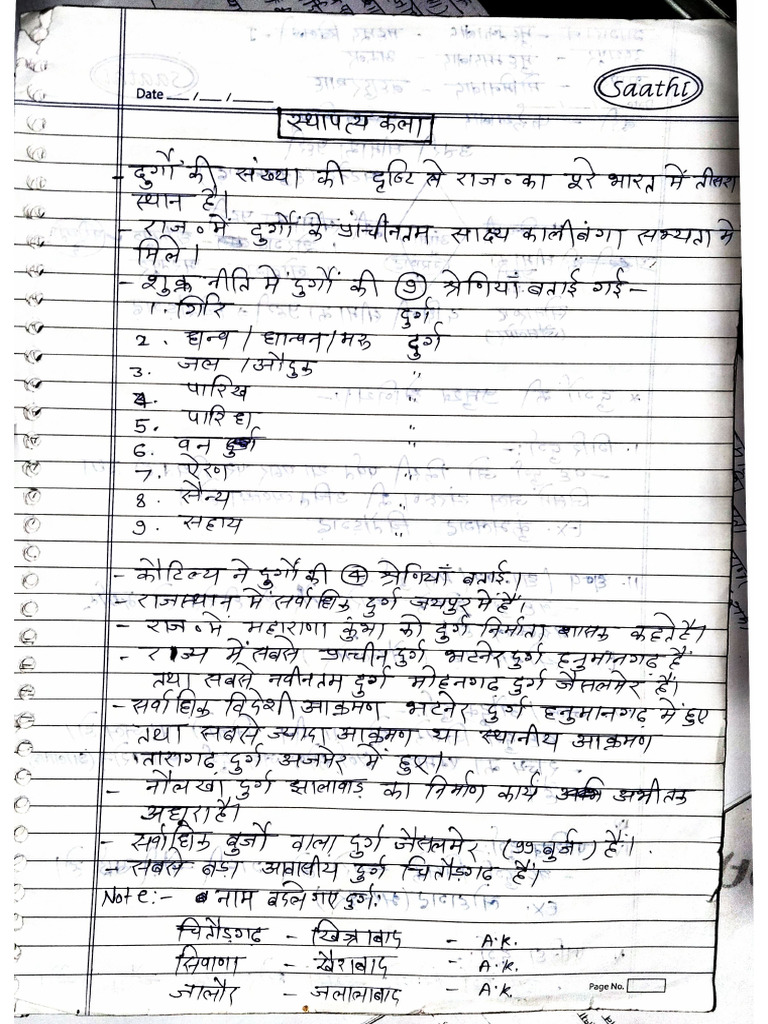 saathi
Date __/__/__
स्थापत्य कला
- दुर्गों की संख्या की दृष्टि से राज॰का पूरे भारत में तीसरा
स्थान है।
- राज॰में दुर्गों के प्राचीनतम साक्ष्य कालीबंगा सभ्यता में
मिले।
- शुक्र नीति में दुर्गों की 9 श्रेणियाँ बताई गई-
1. गिरि दुर्ग
2. धन्व / धान्वन / मरु दुर्ग
3. जल / औदुक "
4. पारिख "
5. पारिध "
6. वन दुर्ग
7. ऐरण "
8. सैन्य "
9. सहाय "
- कौटिल्य ने दुर्गों की 4 श्रेणियाँ बताई।
- राजस्थान में सर्वाधिक दुर्ग जयपुर में हैं।
- राज॰में महाराणा कुंभा को दुर्ग निर्माता शासक कहते है।
- राज्य में सबसे प्राचीन दुर्ग भटनेर दुर्ग हनुमानगढ़ हैं
तथा सबसे नवीनतम दुर्ग मोहनगढ़ दुर्ग जैसलमेर हैं।
- सर्वाधिक विदेशी आक्रमण भटनेर दुर्ग हनुमानगढ़ में हुए
तथा सबसे ज्यादा आक्रमण या स्थानीय आक्रमण
तारागढ़ दुर्ग अजमेर में हुए।
- नौलखा दुर्ग झालावाड़ का निर्माण कार्य अभी तक
अधूरा है।
- सर्वाधिक बुर्जो वाला दुर्ग जैसलमेर (99 बुर्ज) हैं।
- सबसे बड़ा आवासीय दुर्ग चितौड़गढ हैं।
Note:- नाम बदले गए दुर्ग:
चितौड़गढ - खिज्राबाद - A.K.
सिवाणा - खैराबाद - A.K.
जालौर - जलालाबाद - A.K.
Page No.